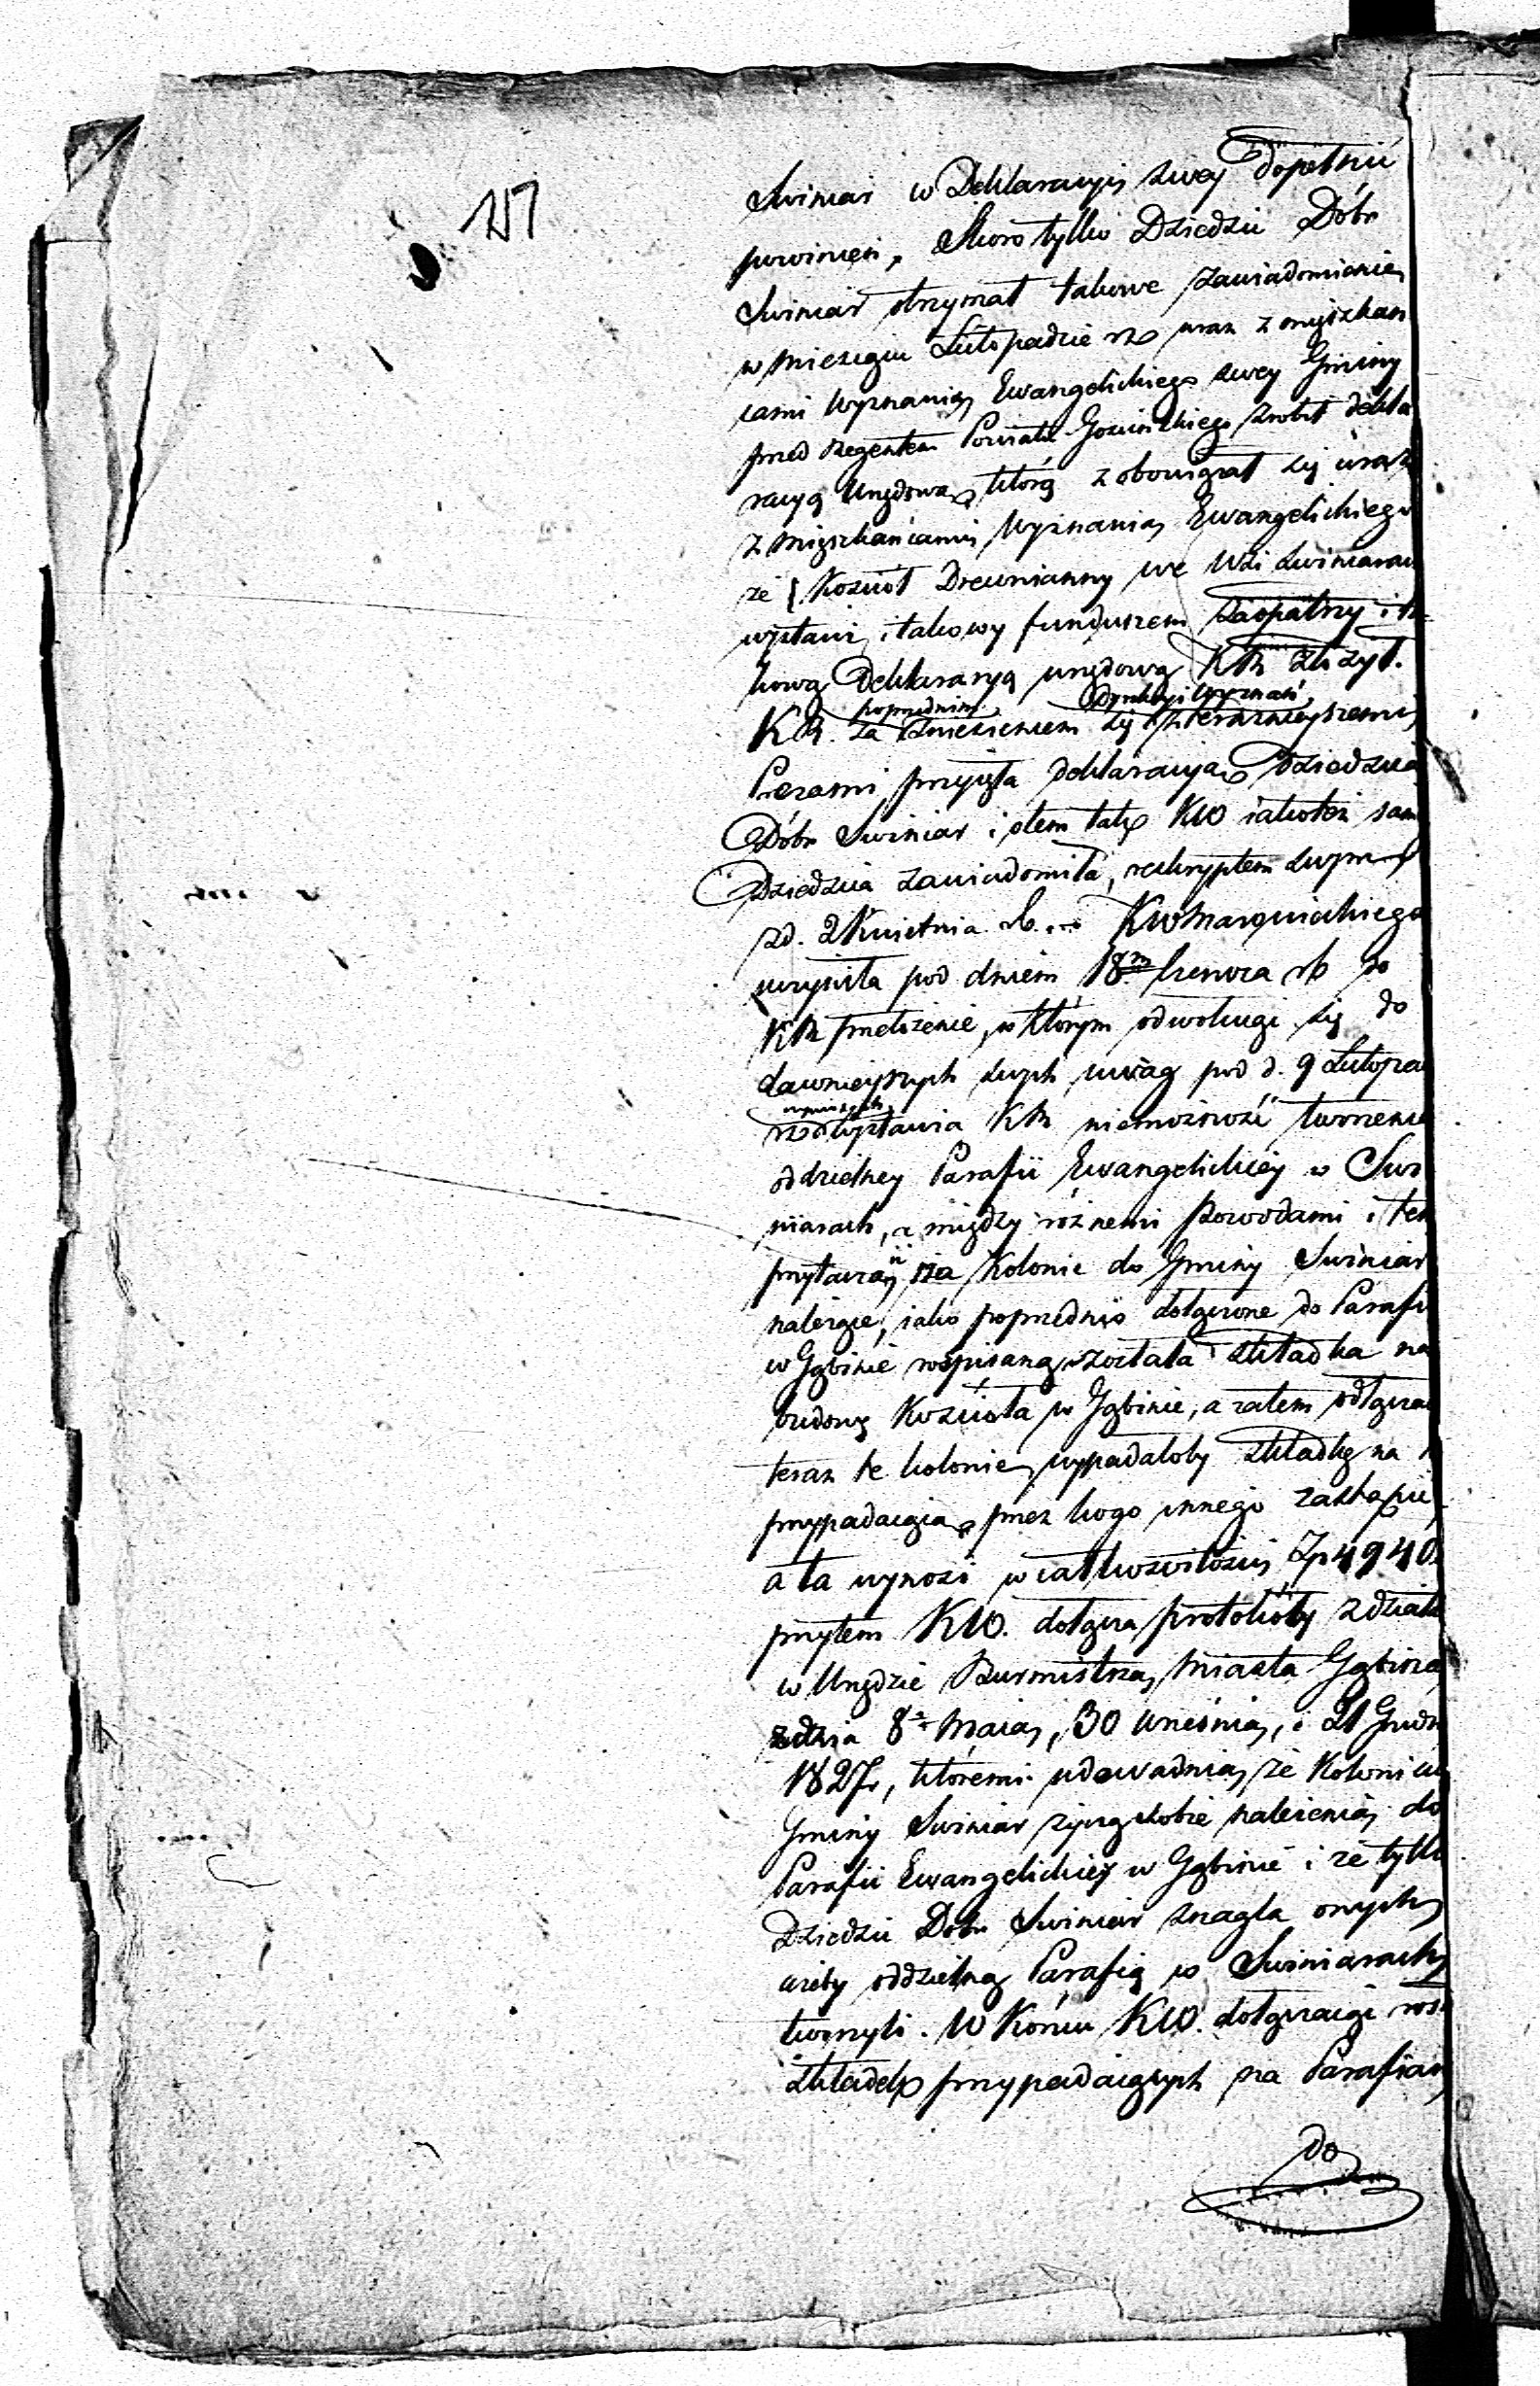 217
Swiniar w Deklaracyi swey dopełnić
powinien, Skoro tylko Dziedzic Dóbr
Swiniar otrzymał takowe zawiadomienie
w Miesiącu Listopadzie rz wraz z mieszkań
cami Wyznania Ewangelickiego swey Gminy
przed Regentem Powiatu Gostińskiego zrobił dekla
racyą Urzędową, którą zobowiązał się wraz
z Mieszkańcami Wyznania Ewangelickiego
że Kosciół Drewnianny we Wsi Swiniarach
wystawi, i takowy funduszem zaopatrzy i ta
kową Deklaracyą urzędową KR złożył.
poprzednim Dyrekcyi Wyznań
KR. za zniesieniem się z teraznieyszemi
Prezami przyięła deklaracyą Dziedzica
Dóbr Swiniar i otem tak KW iakoteż sam
Dziedzica zawiadomiła, reskryptem swym
zd. 2 Kwietnia rb. KW Mazowieckiego
uczyniła pod dniem 18m Czerwca rb do
KR przełożenie, w którym odwołuiąc się do
dawnieyszych swych uwag pod d. 9 Listopa
rz wystawia KR niemożność tworzenia
oddzielney Parafii Ewangelickiéy w Swi
niarach, a między różnemi powodami i ten
przytacza, iż na Kolonie do Gminy Swiniar
należące, iako poprzednio dołączone do Parafii
w Gąbinie rospisaną została składka na
budowę Kościoła w Gąbinie, a zatem odłącza
teraz te kolonie, wypadałoby składkę na n
przypadaiącą przez kogo innego zastąpić,
a ta wynosi w całkowitości Zp 4940.
przytem KW. dołącza protokóły zdziała
w Urzędzie Burmistrza Miasta Gąbina
zdnia 8o Maia, 30 Wrześnią, i 21 Grudn
1827r, któremi udowadnia, że Koloniści
Gminy Swiniar życzą sobie należenia do
Parafii Ewangelickiey w Gąbinie i że tylko
Dziedzic Dóbr Swiniar znagla onych,
ażeby oddzielną Parafią w Swiniarach
tworzyli. W Końcu KW. dołączaiąc ros
składek przypadaiących na Parafian
do